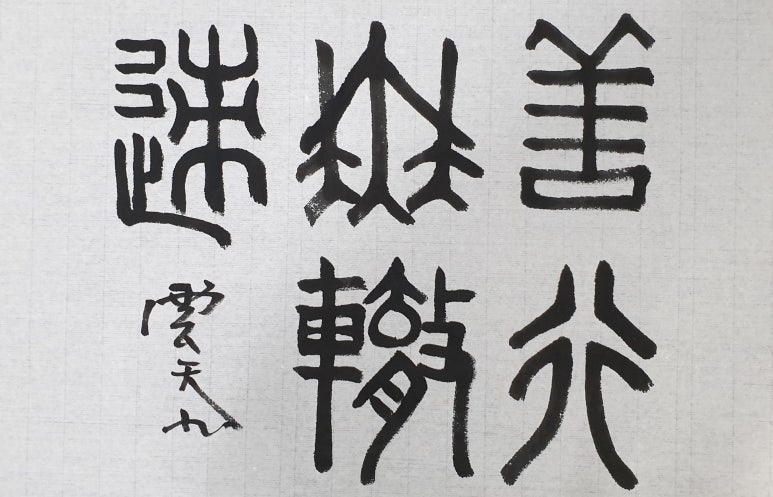 善行
無轍
迹
雲天